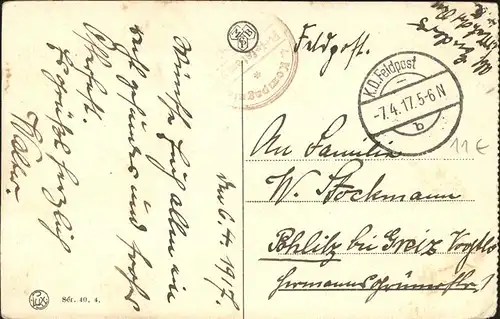 Feldpost.
4. Kompagnie
K.D. Feldpost
-7.4.17. 5-6 N
b
11 €
An Familie
W. Stockmann
Pohlitz bei Greiz Vogtl.
Hermannsgrünerstr. 1
den 6.4.1917.
Wünsche Euch allen ein
recht gesundes und frohes
Osterfest.
Es grüßt herzlich
Walter.
Sér. 40, 4.